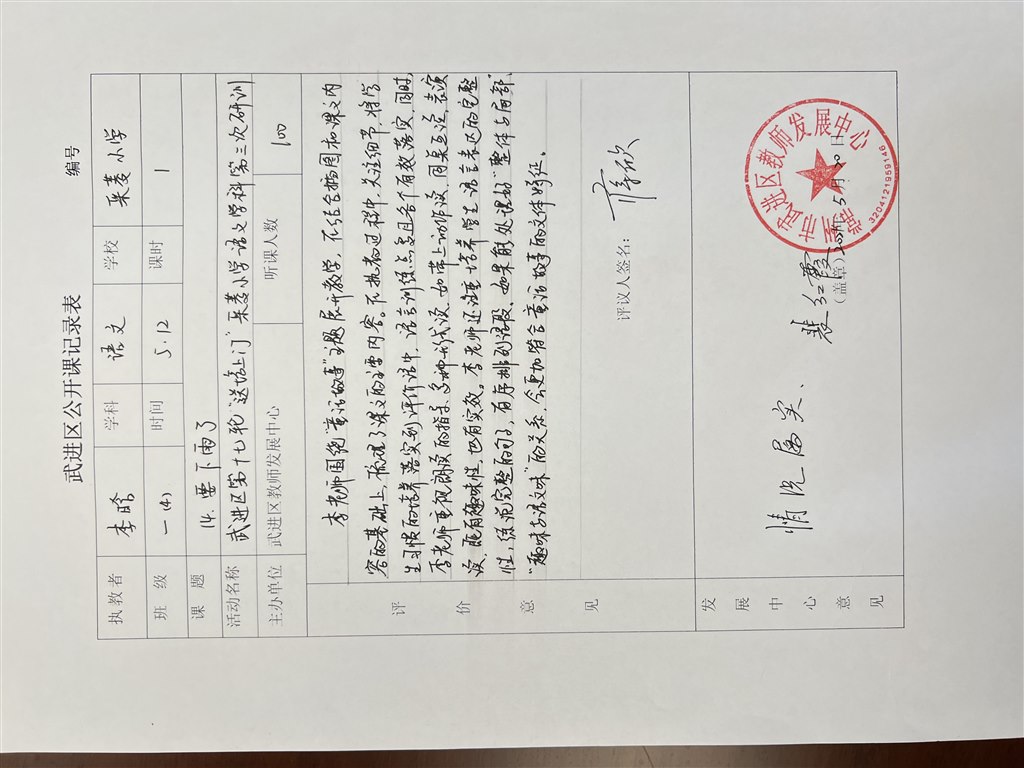 武进区公开课记录表
编号
执教者 李晗 学科 语文 学校 采菱小学
班级 一(4) 时间 5.12 课时 1
课题 14.要下雨了
活动名称 武进区第十七轮“送培上门”采菱小学语文学科第三次研训
主办单位 武进区教师发展中心 听课人数 100
评价意见
李老师围绕“童话故事”主题展开教学,在结合插图和课文内
容的基础上,梳理了课文的主要内容。在执教过程中,关注细节,将学
生习惯的培养落实到评价语中,语言训练点且各个有效落实,同时,
李老师重视朗读的指导,多种形式读,如带上动作读、同桌互读、表演
读,既有趣味性,也有实效。李老师还注重培养学生语言表达的完整
性,练说完整的句子,有序排列语段,如果能处理好“整体与局部”、
“趣味与语文味”的关系,会更加符合童话故事的文体特征。
评议人签名:
发展中心意见
情况属实、
裴红霞
(盖章) 5月20日
常州市武进区教师发展中心
3204121959146